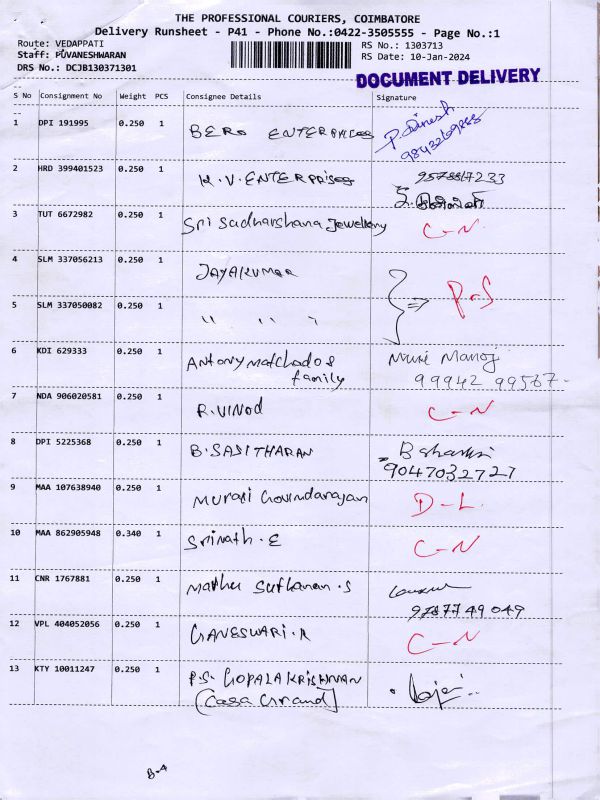 THE PROFESSIONAL COURIERS, COIMBATORE
Delivery Runsheet - P41 - Phone No.:0422-3505555 - Page No.:1
Route: VEDAPPATI
Staff: PUVANESHWARAN
DRS No.: DCJB130371301
RS No.: 1303713
RS Date: 10-Jan-2024
DOCUMENT DELIVERY
S No Consignment No Weight PCS Consignee Details Signature
1 DPI 191995 0.250 1 BERG ENTERPRICES P. Dinesh
9843269288
2 HRD 399401523 0.250 1 K.V. ENTERPRISES 9578867233
3 TUT 6672982 0.250 1 Sri Sudharshana Jewellery C-N
4 SLM 337056213 0.250 1 JAYAKUMAR
P-S
5 SLM 337050082 0.250 1 " " "
6 KDI 629333 0.250 1 Antony Matchado & Manoj
family 99942 99567-
7 NDA 906020581 0.250 1 R.VINOD C-N
8 DPI 5225368 0.250 1 B.SASITHARAN
9047032727
9 MAA 107638940 0.250 1 Murali Govindarajan D-L
10 MAA 862905948 0.340 1 Srinath.E C-N
11 CNR 1767881 0.250 1 Mathu Suthanan.S
9787749049
12 VPL 404052056 0.250 1 GANESWARI.R C-N
13 KTY 10011247 0.250 1 P.S. GOPALAKRISHNAN
(Casa Grand)
B-4